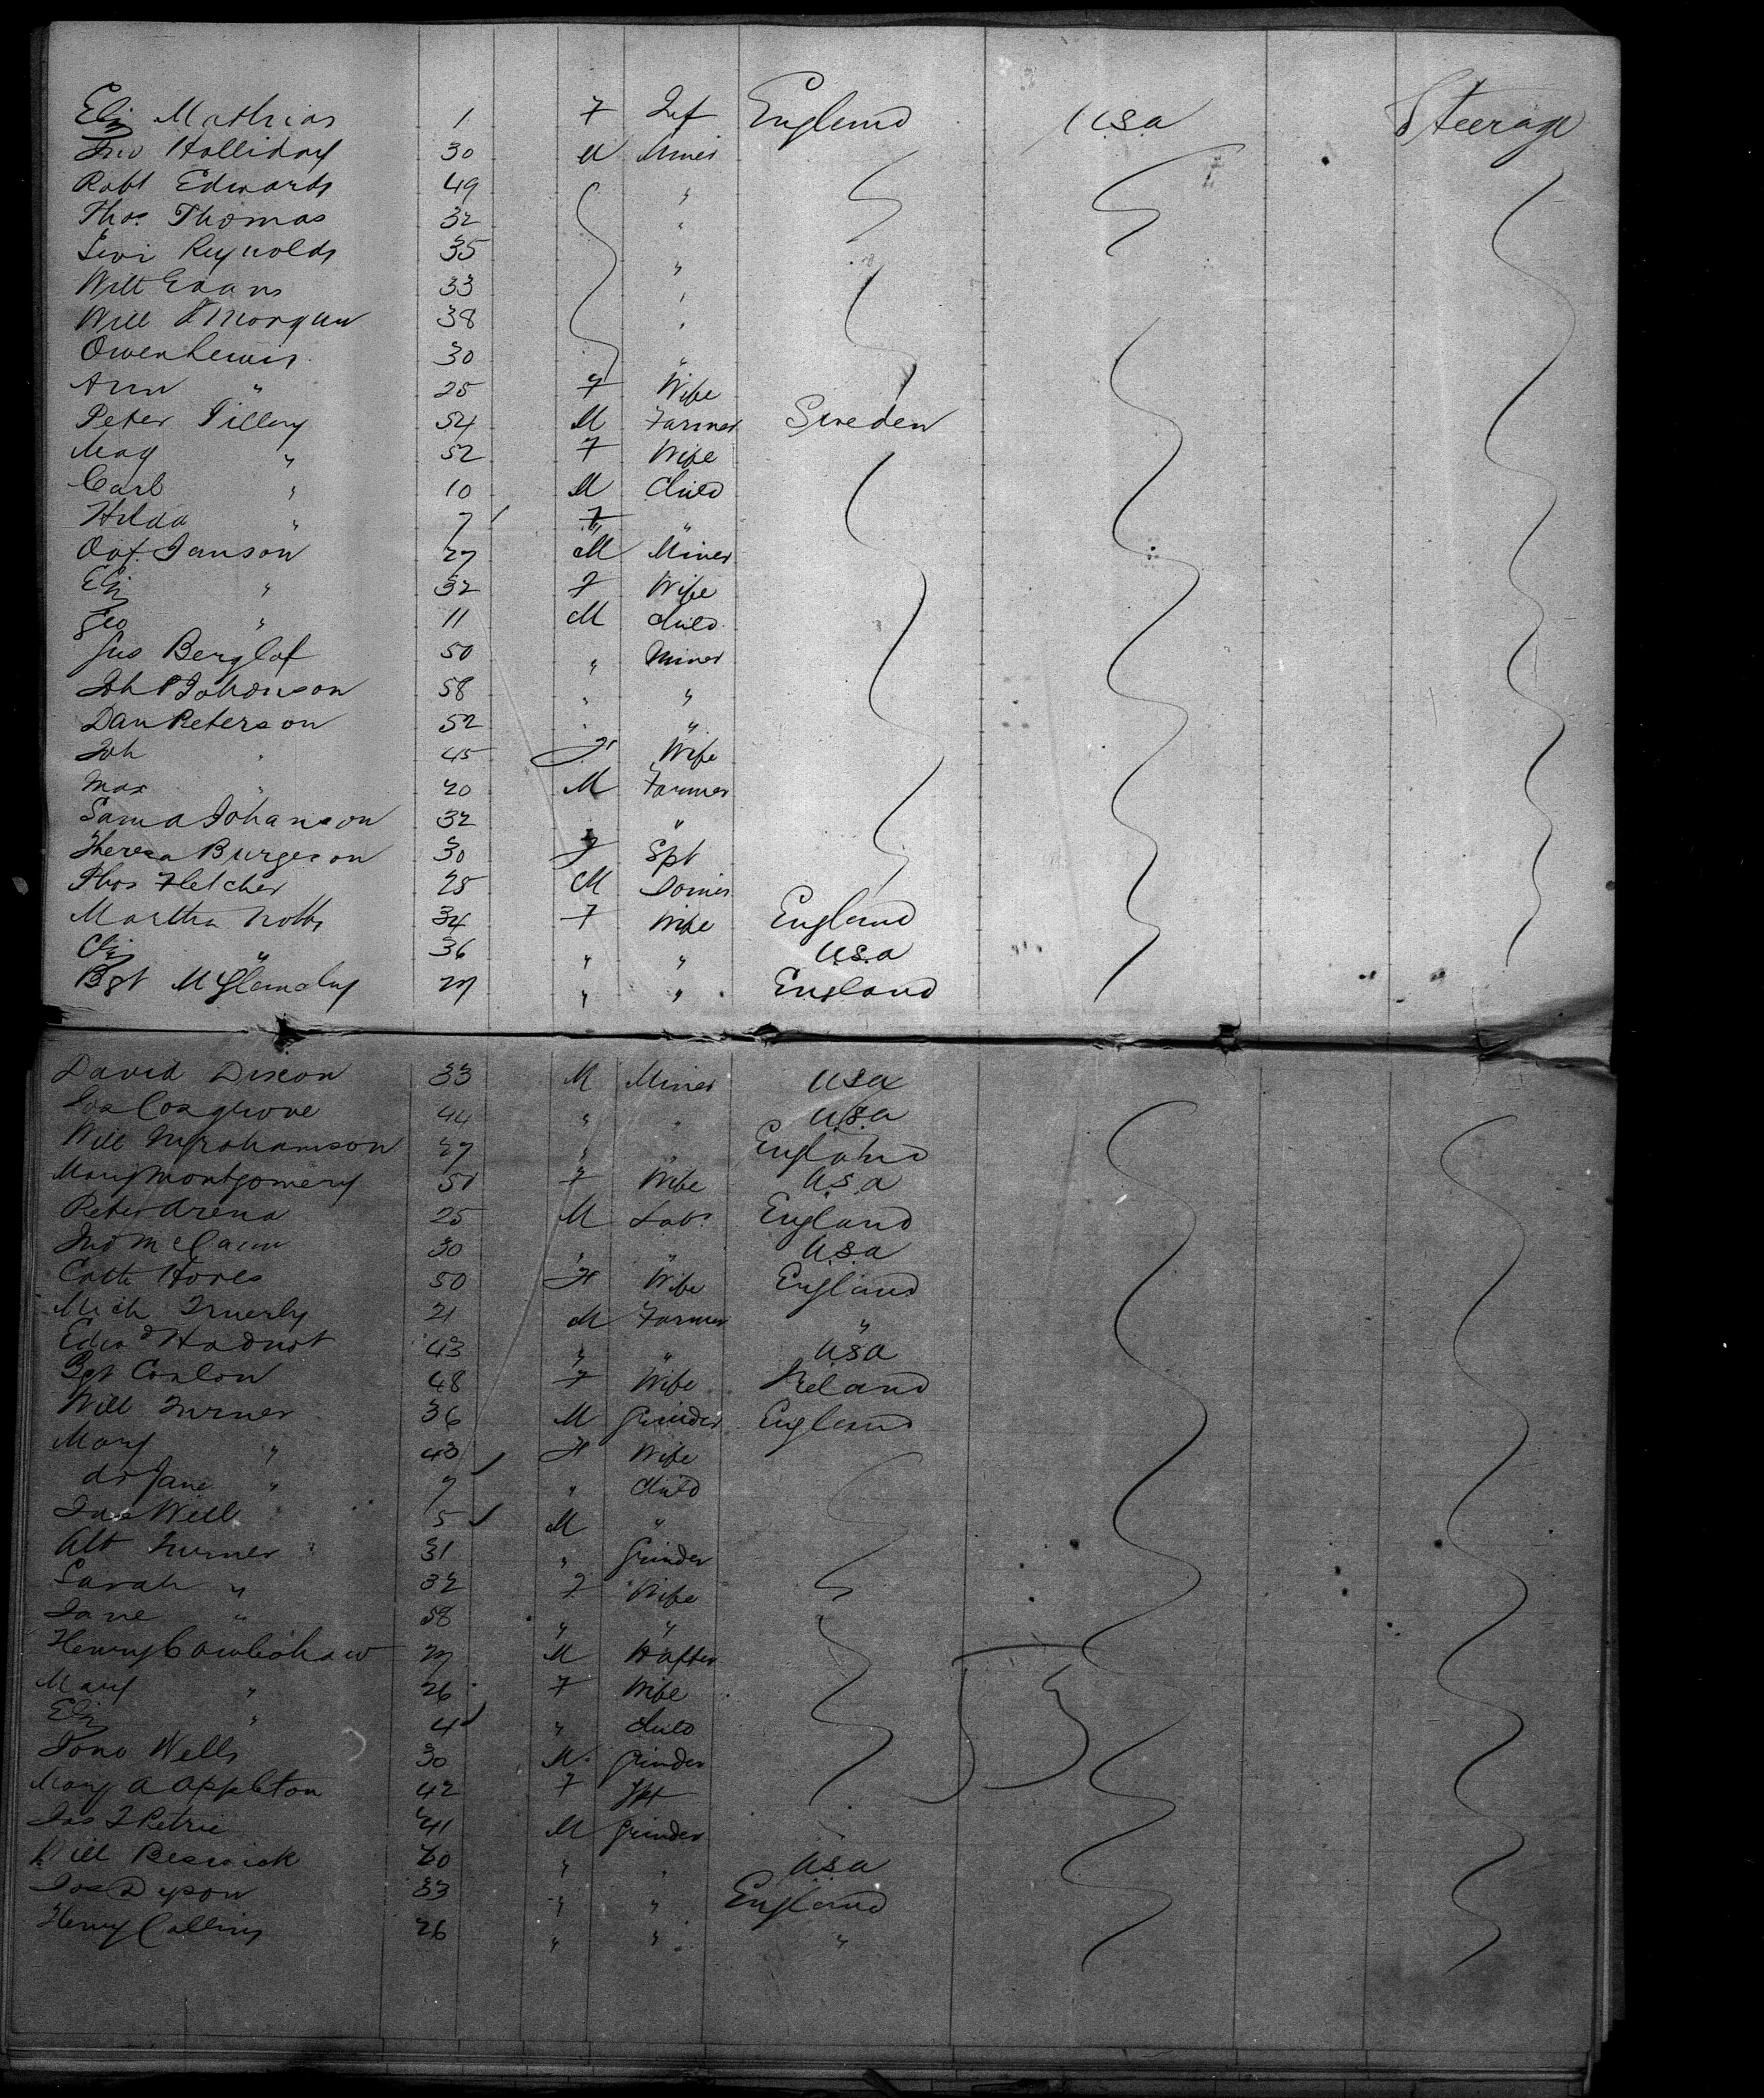 Eliz Mathias 1 F Inf England USA Steerage
Jno Holliday 30 M Miner
Robt Edwards 49 "
Thos. Thomas 32 "
Levi Reynolds 35 "
Will Evans 33 "
Will J Morgan 38 "
Owen Lewis 30 "
Ann " 25 F Wife
Peter 54 M Farmer Sweden
Mag " 52 F Wife
Carl " 10 M Child
Hilda " 7 F "
Oof. Janson 27 M Miner
Eliz " 32 F Wife
Geo " 11 M Child
Gus Berglof 50 " Miner
Joh P Johanson 58 " "
Dan Peterson 52 " "
Joh " 45 F Wife
Max " 20 M Farmer
Sam A Johanson 32 "
Theresa Burgeson 30 F Spt
Thos Fletcher 25 M
Martha Nobbs 34 F Wife England
Eliz " 36 " " USA
Bgt 27 " " England
David Dixon 33 M Miner USA
Jos Cosgrove 44 " " USA
Will 27 " " England
Mary Montgomery 51 F Wife USA
Peter Arena 25 M Labr England
Jno McCann 30 " " USA
Cath 50 F Wife England
Mich 21 M Farmer "
Edwd Hadnot 43 " " USA
Bgt Conlon 48 F Wife Ireland
Will Turner 36 M Grinder England
Mary " 43 F Wife
do Jane " 7 " Child
Jas Will 5 M "
Alb Turner 31 " Grinder
Sarah " 32 F Wife
Jane " 58 " "
Henry Cawlishaw 27 M Hafter
Mary " 26 F Wife
Eliz " 4 " Child
Jono Wells 30 M Grinder
Mary A Appleton 42 F Spt
Jas T Petrie 41 M Grinder
Will Beswick 30 " " USA
Jos Dyson 33 " " England
Henry Collins 26 " " "